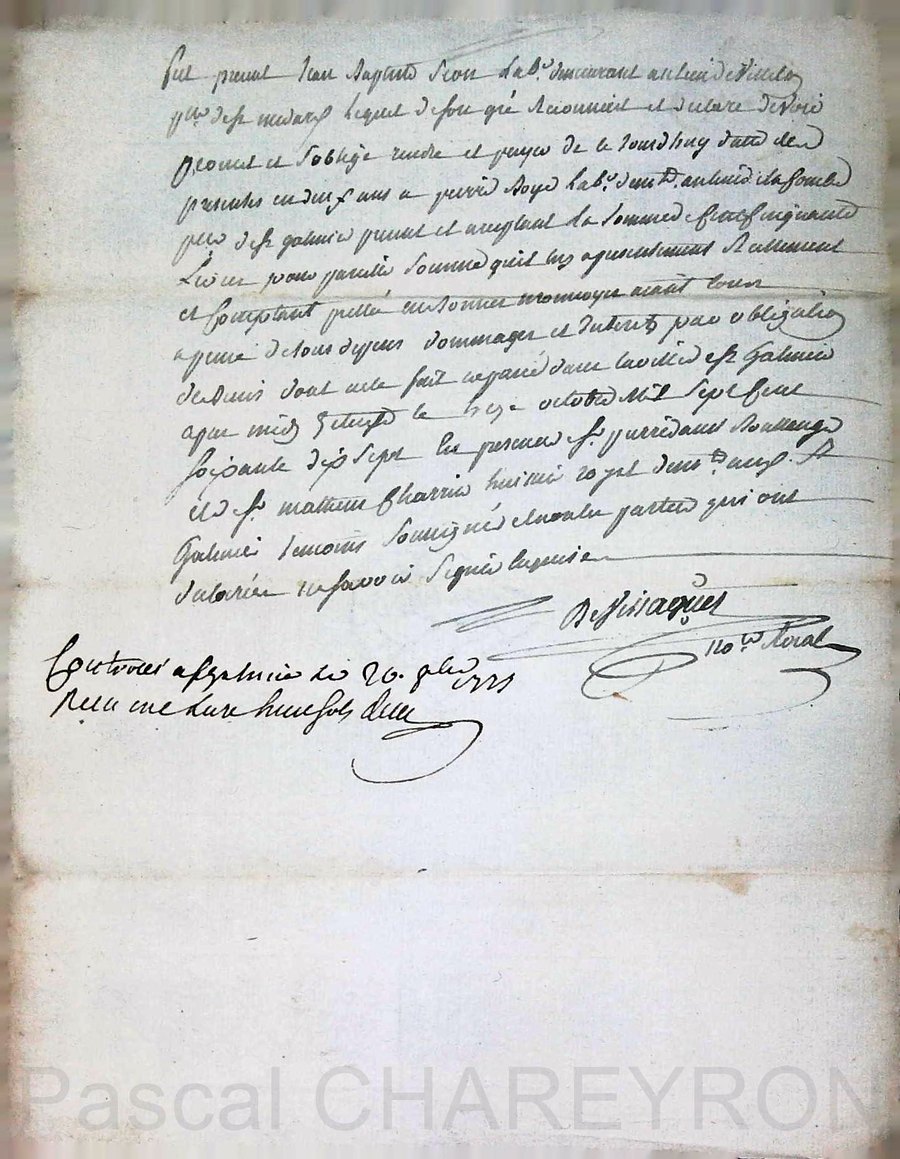 fut present Jean Baptiste Jean Lab.r demeurant au lieu de
p.sse de s.t medard Lequel de son gré Reconnoit et declare devoir
promet et s'oblige rendre et payer de ce jourdhuy datte des
presentes en deux ans a pierre Lab.r dem.t au lieu de la Combe
p.sse de s.t galmier present et acceptant La somme de cent cinquante
Livres pour pareille somme quil luy a presentement Reellement
et comptant pretté en bonnes monnoyes aiant cours
a peine de tous depens dommages et interets par obligation
de Biens dont acte fait et passé dans la ville de s.t Galmier
apres midy le octobre Mil sept cent
soixante dix sept En presence de s.r Boulanger
et de s.r mathieu Charrin huissier royal dem.t aud. S.t
Galmier temoins soussignés et non les parties qui ont
déclaré ne savoir signer enquises
DeVissaguet
no.re Roial
Controllé a s.t galmier le 26.
Reçu une Livre huit sols
Pascal CHAREYRON